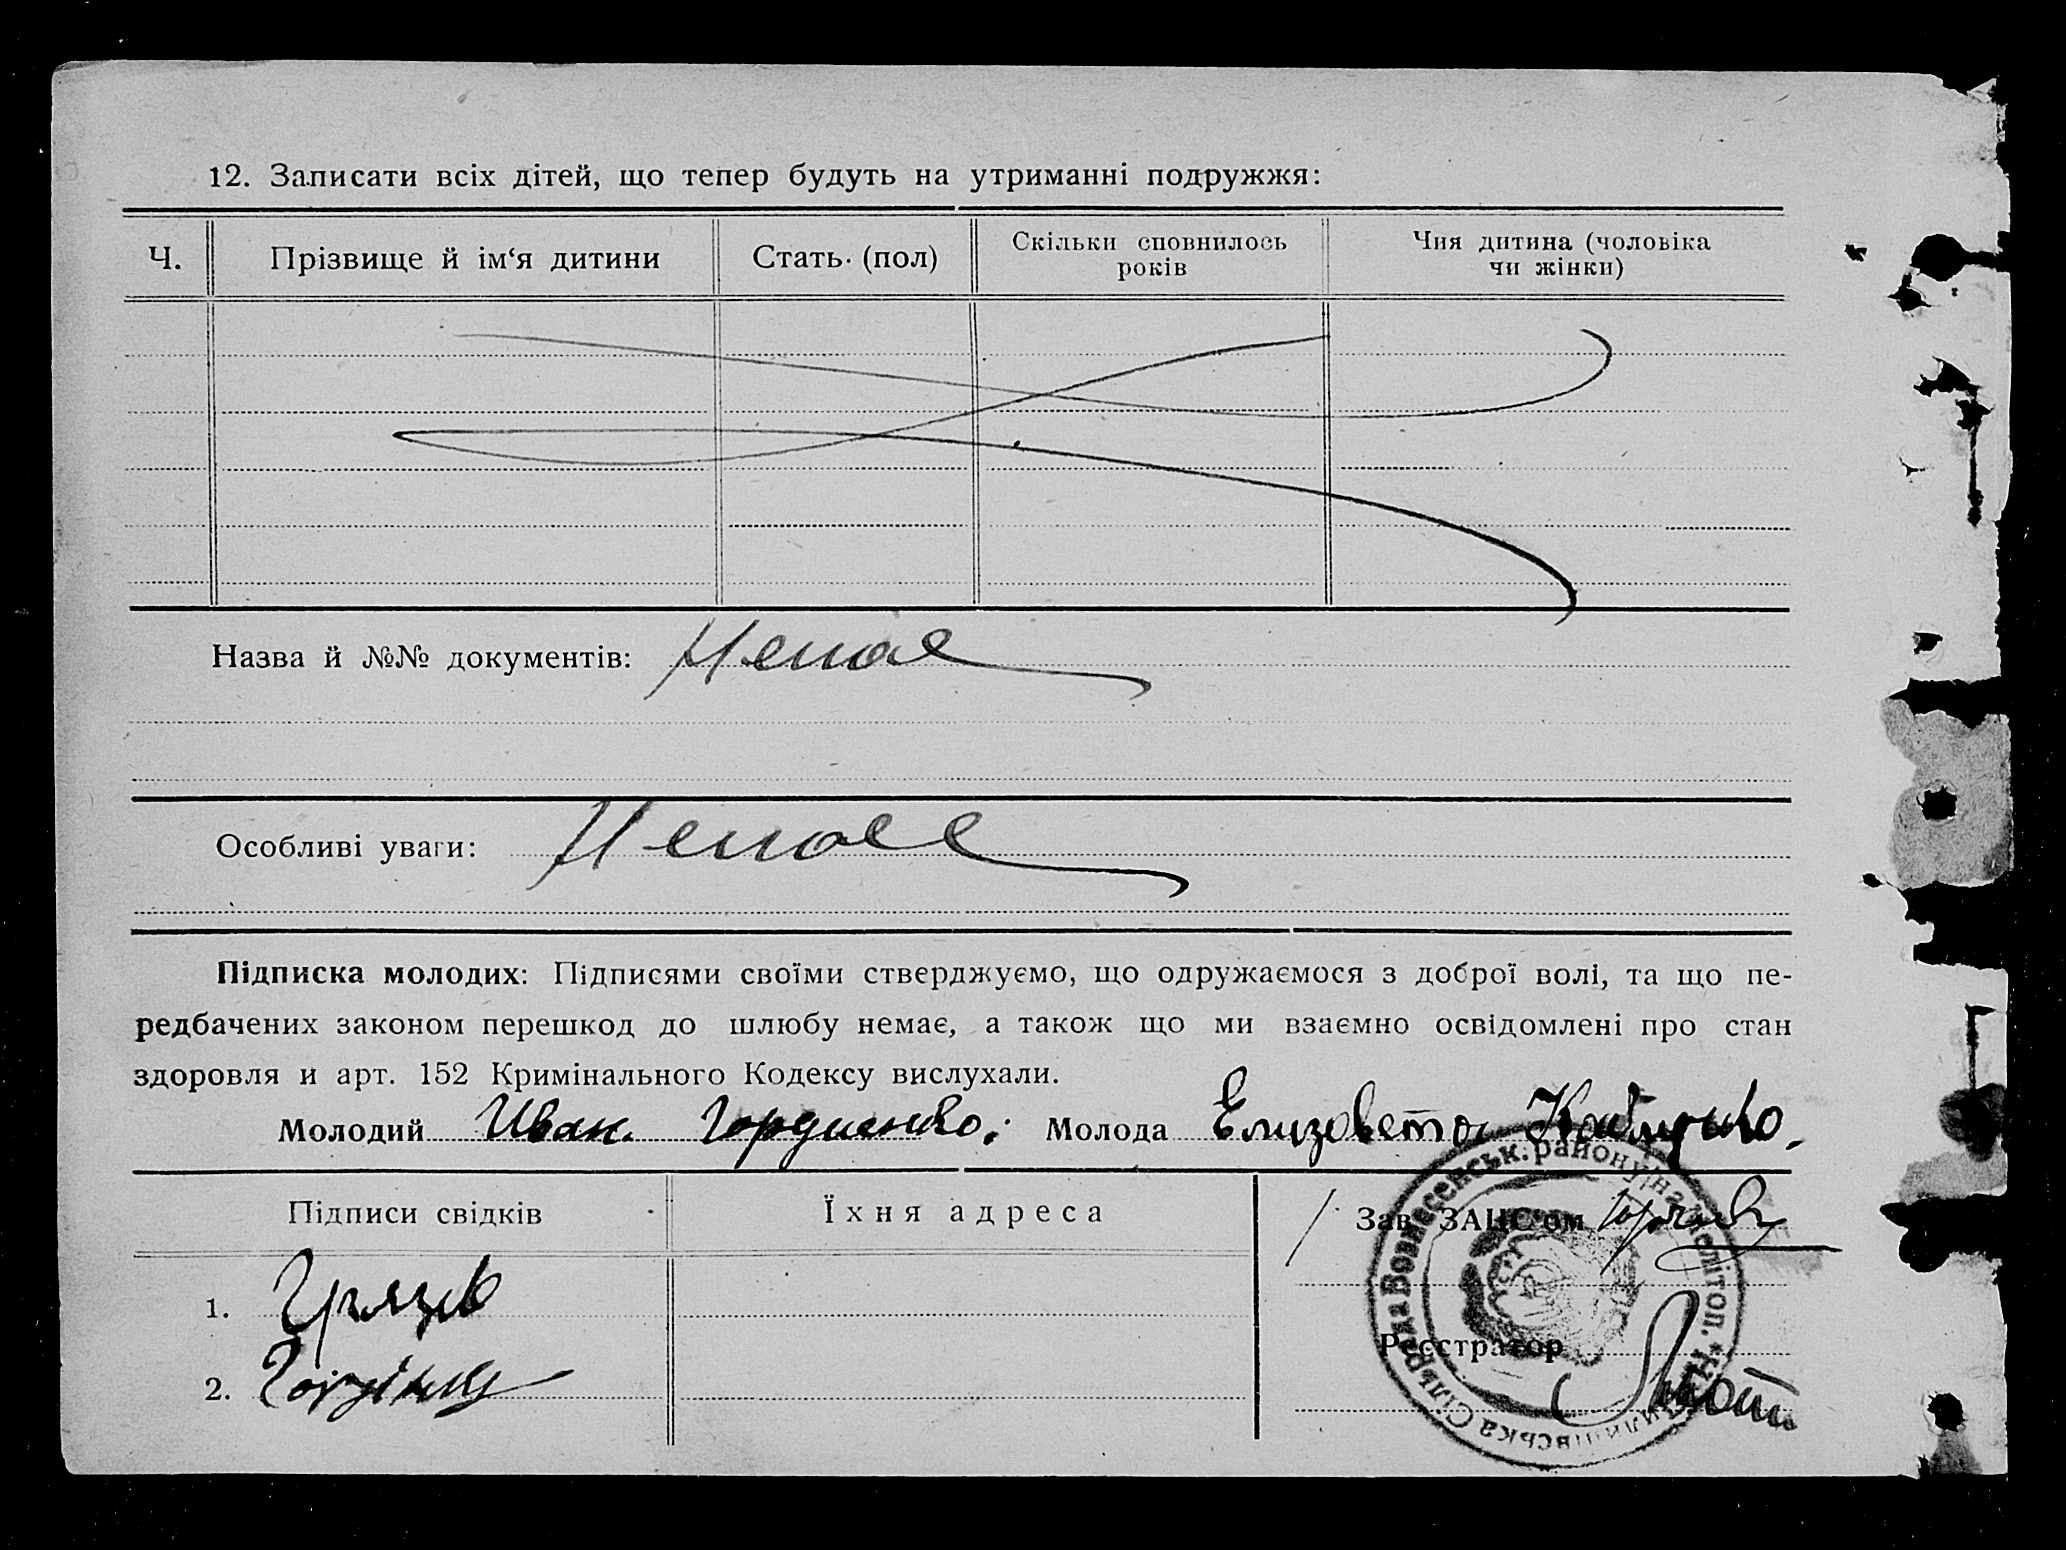 12. Записати всіх дітей, що тепер будуть на утриманні подружжя:
Ч. Прізвище й ім‘я дитини Стать (пол) Скільки сповнилось років Чия дитина (чоловіка чи жінки)
Назва й №№ документів: Немає
Особливі уваги: Немає
Підписка молодих: Підписями своїми стверджуємо, що одружаємося з доброї волі, та що пе-
редбачених законом перешкод до шлюбу немає, а також що ми взаємно освідомлені про стан
здоровля и арт. 152 Кримінального Кодексу вислухали.
Молодий Иван Гордиенко; Молода Елизовета
Підписи свідків Їхня адреса Зав. ЗАЦС‘ом
1.
Реєстратор
2.
Вознесенськ. району на Мелітоп.